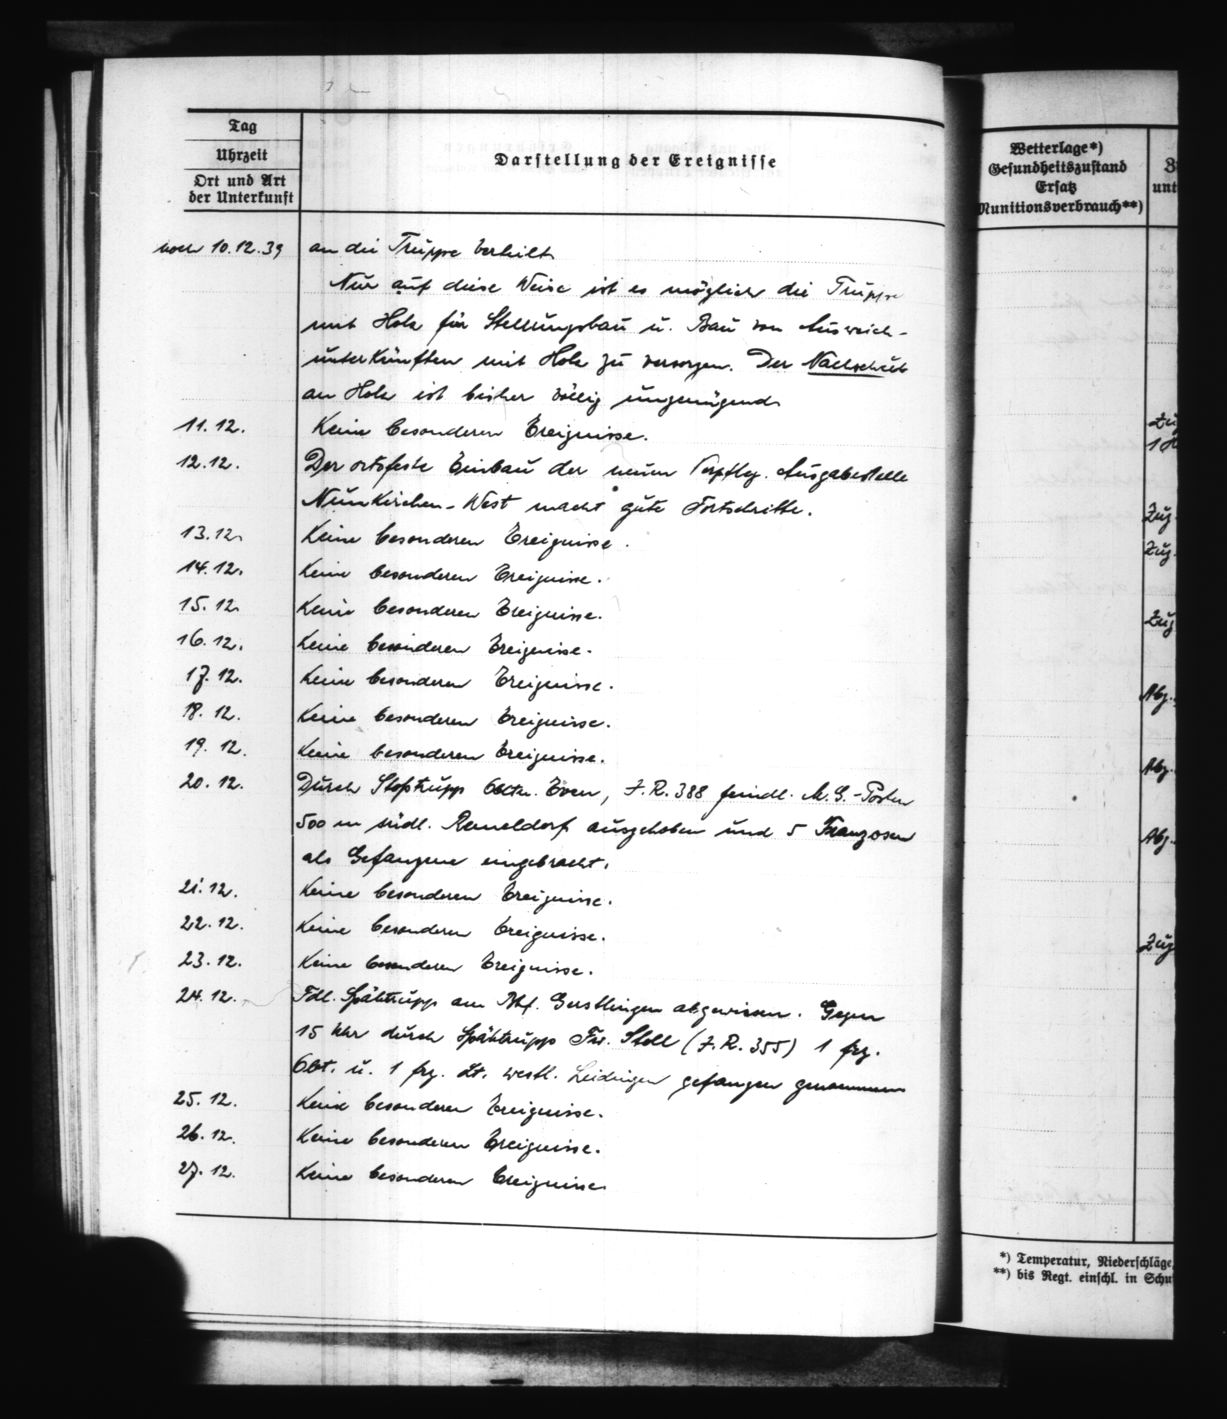 Tag
Uhrzeit
Ort und Art
der Unterkunft
Darstellung der Ereignisse
noch 10.12.39 an die Truppe verteilt.
Nur auf diese Weise ist es möglich die Truppe
mit Holz für Stellungsbau u. Bau von Ausweich-
unterkünften mit Holz zu versorgen. Der Nachschub
an Holz ist bisher völlig ungenügend.
11.12. Keine besonderen Ereignisse.
12.12. Der ortsfeste Einbau der neuen Verpfleg. Ausgabestelle
Neunkirchen-West macht gute Fortschritte.
13.12. Keine besonderen Ereignisse.
14.12. Keine besonderen Ereignisse.
15.12. Keine besonderen Ereignisse.
16.12. Keine besonderen Ereignisse.
17.12. Keine besonderen Ereignisse.
18.12. Keine besonderen Ereignisse.
19.12. Keine besonderen Ereignisse.
20.12. Durch Stoßtrupp Obltn. Even, J.R. 388 feindl. M.G.-Posten
500 m südl. Rameldorf ausgehoben und 5 Franzosen
als Gefangene eingebracht.
21.12. Keine besonderen Ereignisse.
22.12. Keine besonderen Ereignisse.
23.12. Keine besonderen Ereignisse.
24.12. Fdl. Spähtrupp am Bhf. Gerstlingen abgewiesen. Gegen
15 Uhr durch Spähtrupp Stoll (J.R. 355) 1 frz.
Obt. u. 1 frz. Lt. westl. Leidingen gefangen genommen
25.12. Keine besonderen Ereignisse.
26.12. Keine besonderen Ereignisse.
27.12. Keine besonderen Ereignisse
Wetterlage*)
Gesundheitszustand
Ersatz
Munitionsverbrauch**)
unt
Zug
Zug.
Zug
Abg.
Abg.
Abg.
Zug
*) Temperatur, Niederschläge,
**) bis Regt. einschl. in Schu